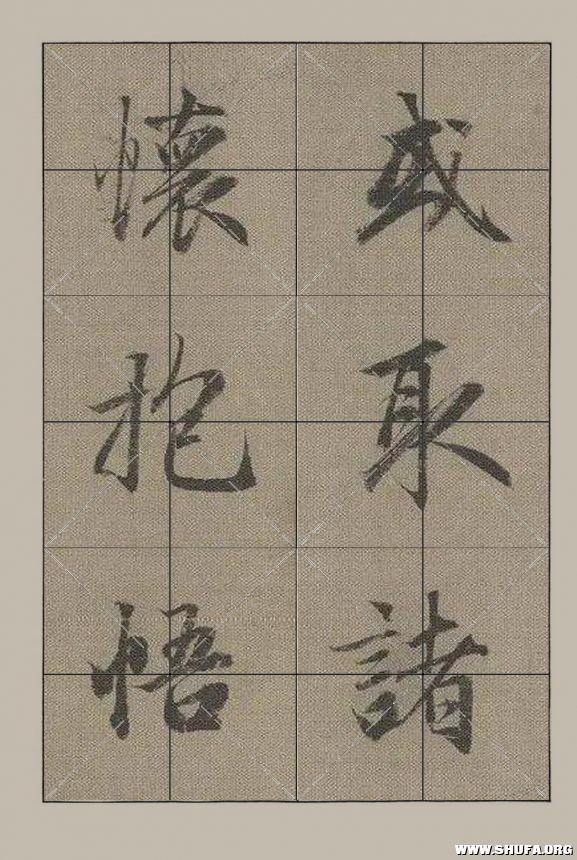 或取諸
懷抱悟
WWW.SHUFA.ORG